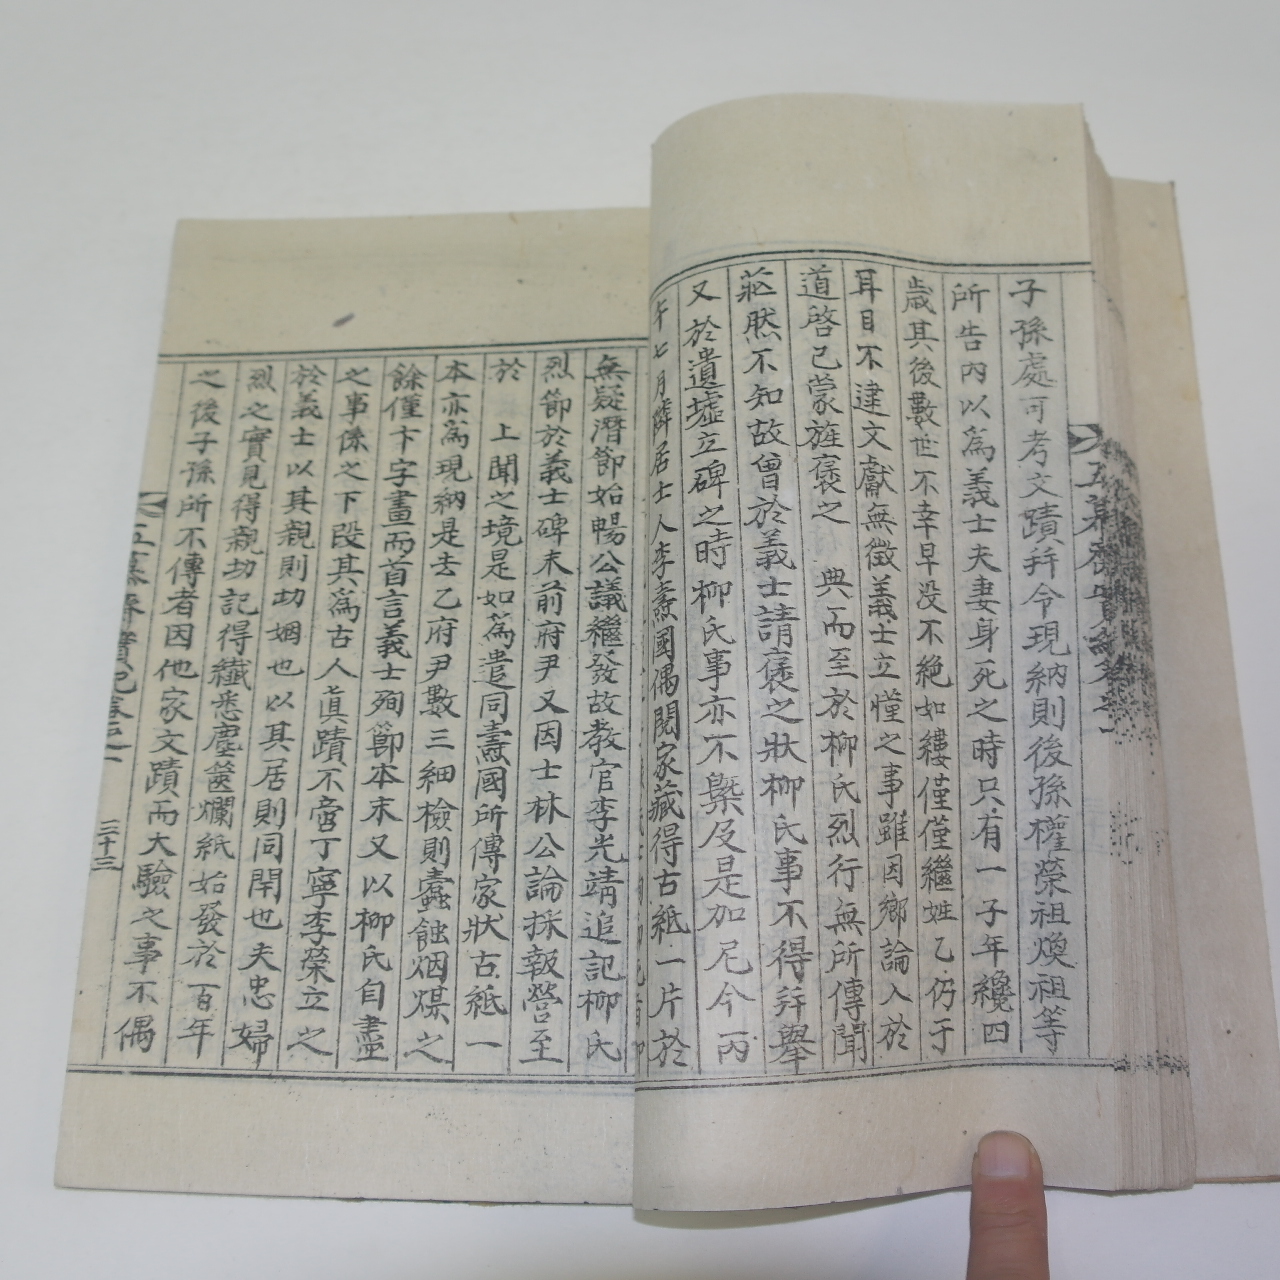 子孫處可考文蹟幷令現納則後孫權榮祖煥祖等
所告內以爲義士夫妻身死之時只有一子年纔四
歲其後數世不幸早没不絶如縷僅僅繼姓乙仍于
耳目不逮文獻無徵義士立慬之事雖因鄉論入於
道啓已蒙旌褒之 典而至於柳氏烈行無所傳聞
茫然不知故曾於義士請褒之狀柳氏事不得幷擧
又於遺墟立碑之時柳氏事亦不槩及是加尼今丙
午七月隣居士人李燾國偶閱家藏得古紙一片於
無疑潛節始暢公議繼發故教官李光靖追記柳氏
烈節於義士碑末前府尹又因士林公論採報營至
於 上聞之境是如爲遣同燾國所傳家狀古紙一
本亦爲現納是去乙府尹數三細檢則蠹蝕烟煤之
餘僅卞字畫而首言義士殉節本末又以柳氏自盡
之事係之下段其爲古人眞蹟不啻丁寧李榮立之
於義士以其親則切姻也以其居則同閈也夫忠婦
烈之實見得親切記得纖悉塵篋爛紙始發於百年
之後子孫所不傳者因他家文蹟而大驗之事不偶
三十三